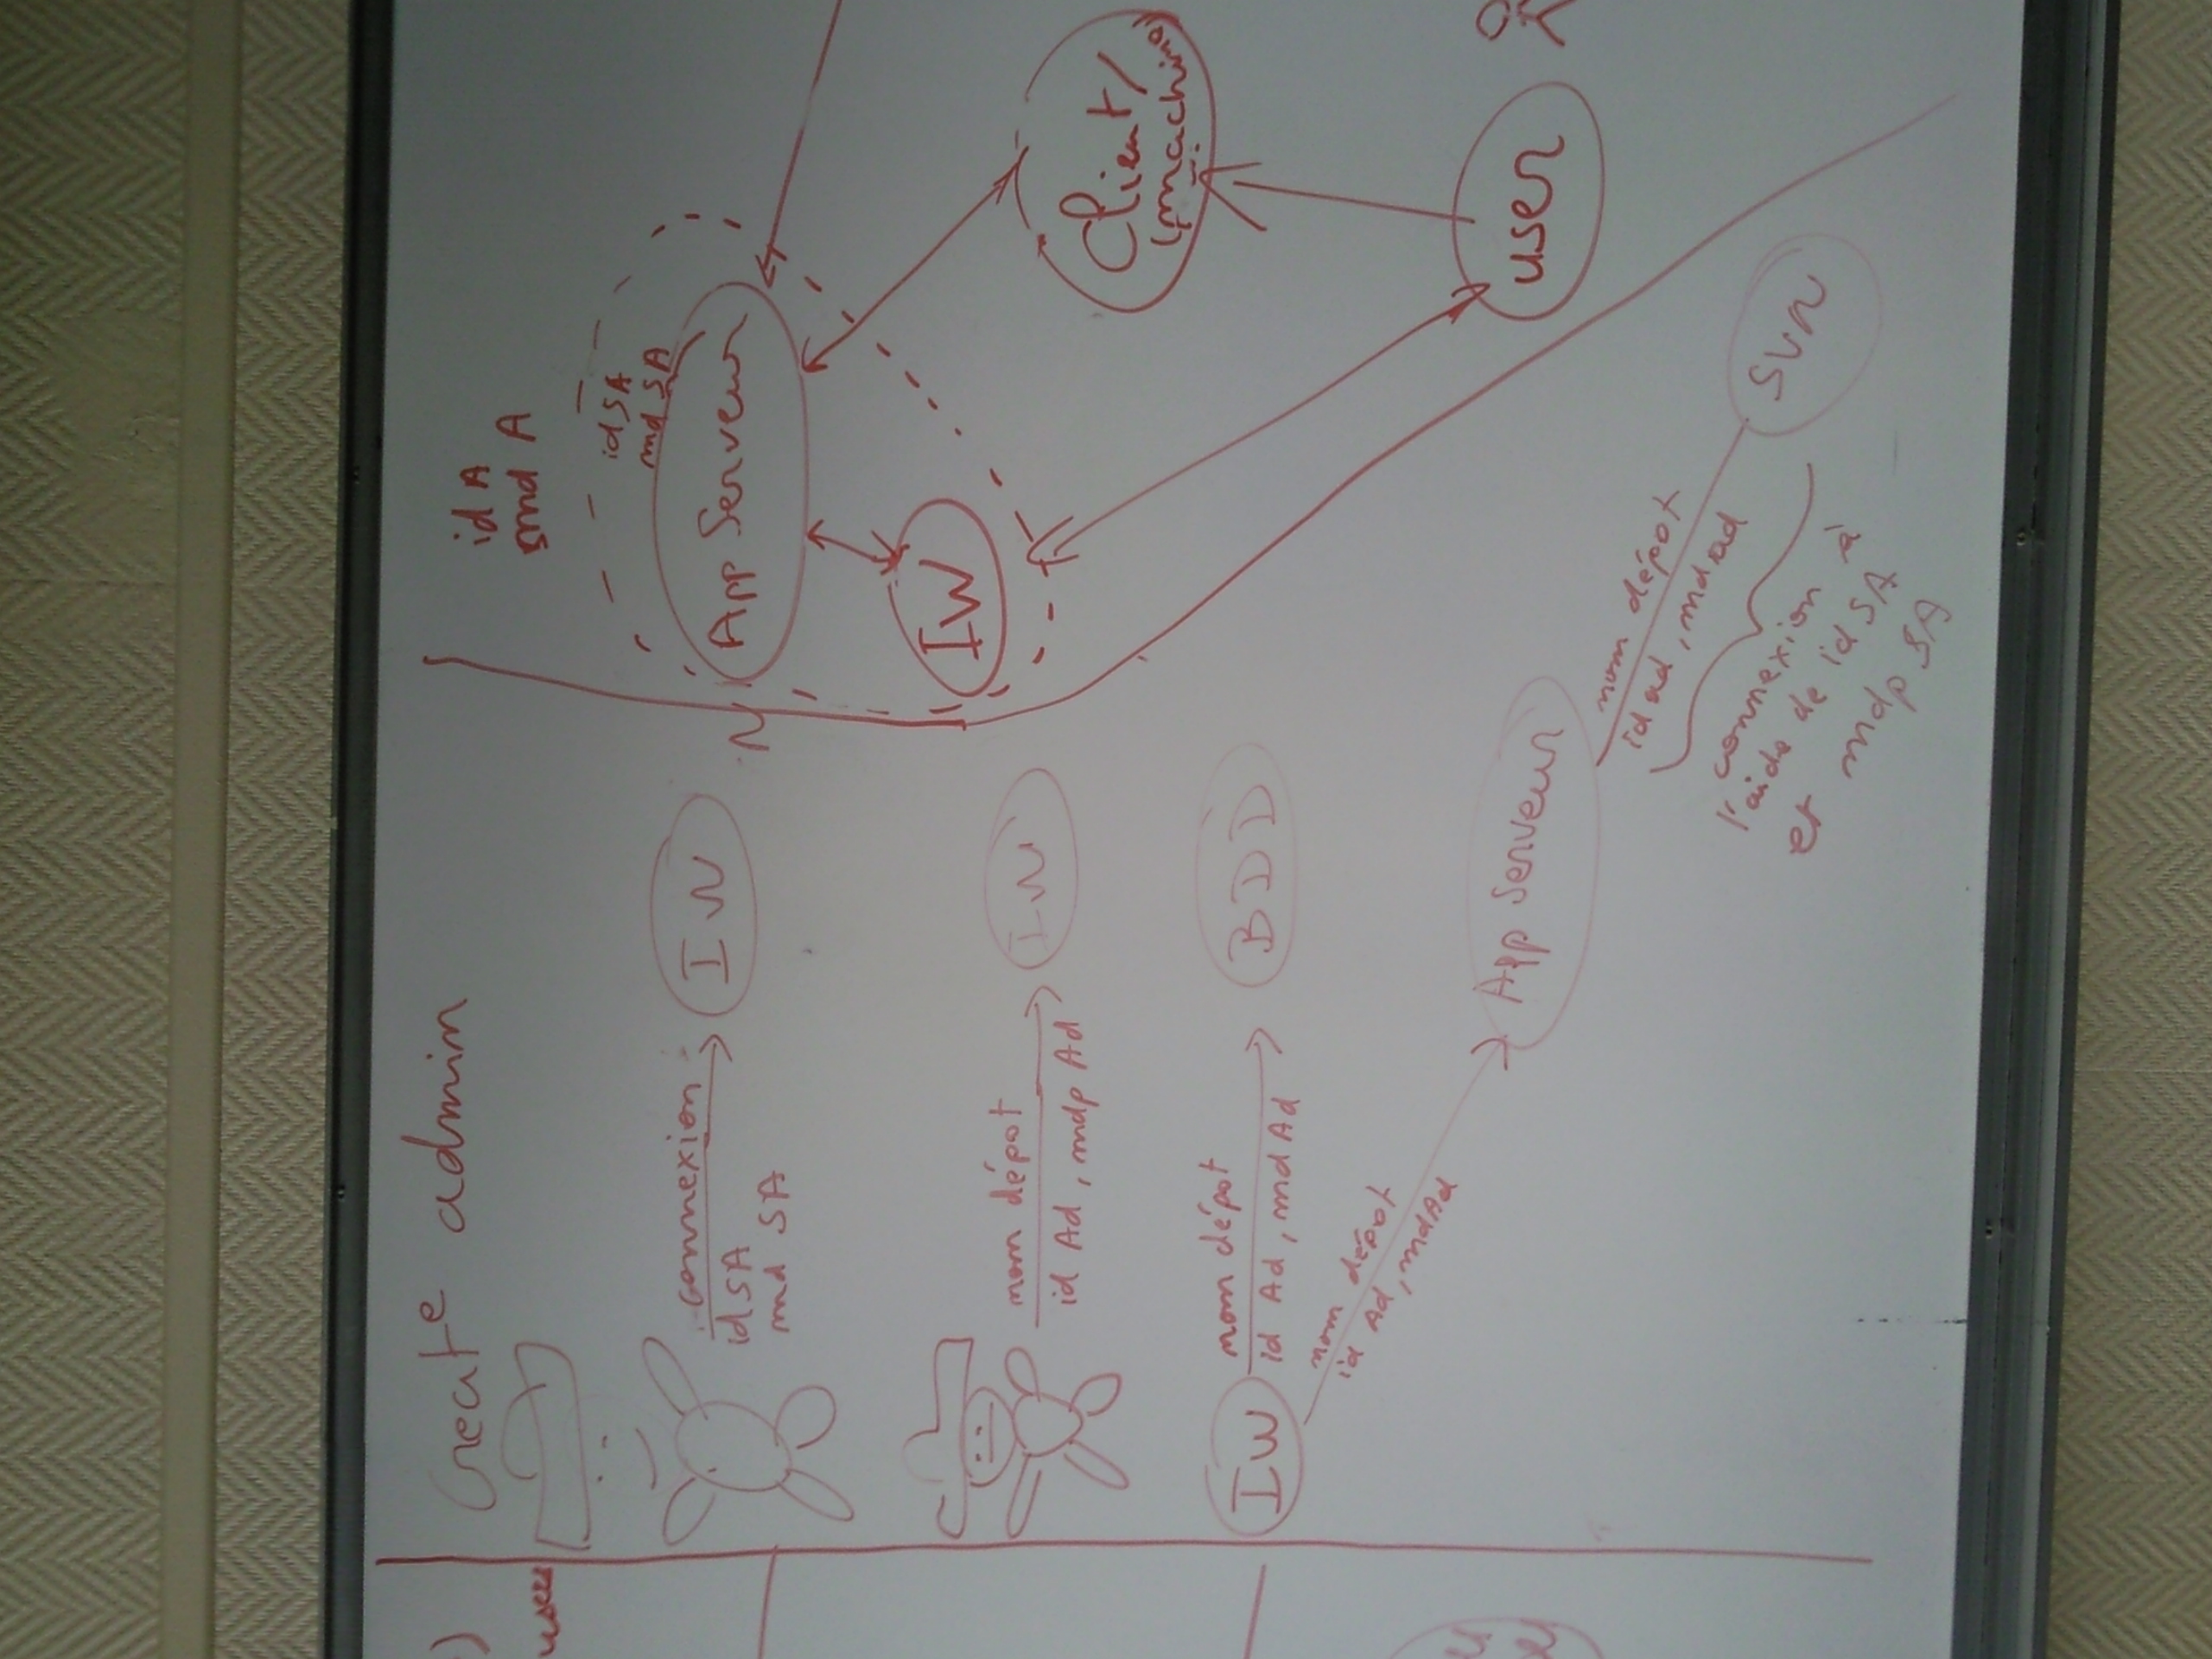 users
Create admin
connexion
id SA
md SA
IW
nom dépot
id Ad, mdp Ad
IW
IW
nom dépot
id Ad, md Ad
BDD
nom dépot
id Ad, md Ad
App Serveur
nom dépot
id ad, md ad
connexion à
l'aide de id SA
et mdp SA
SVN
id A
md A
id SA
md SA
App Serveur
N
IW
Client/
(machine)
user